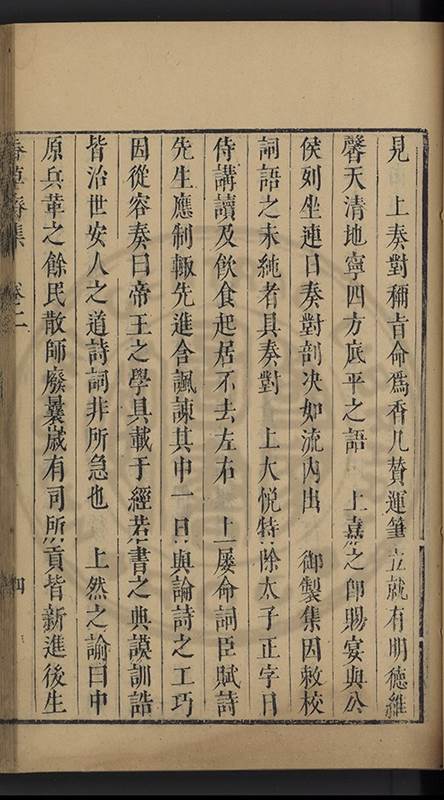 見　上奏對稱旨命爲香几贊運筆立就有明德維
馨天清地寧四方底平之語　上嘉之卽賜宴與公
侯列坐連日奏對剖决如流内出　御製集因敕校
詞語之未純者具奏對　上大悅特除太子正字日
侍講讀及飲食起居不去左右　上屢命詞臣賦詩
先生應制輙先進含諷諫其中一日與論詩之工巧
因從容奏曰帝王之學具載于經若書之典謨訓誥
皆治世安人之道詩詞非所急也　上然之諭曰中
原兵革之餘民散師廢曩歲有司所貢皆新進後生
春草齋集　卷二　四